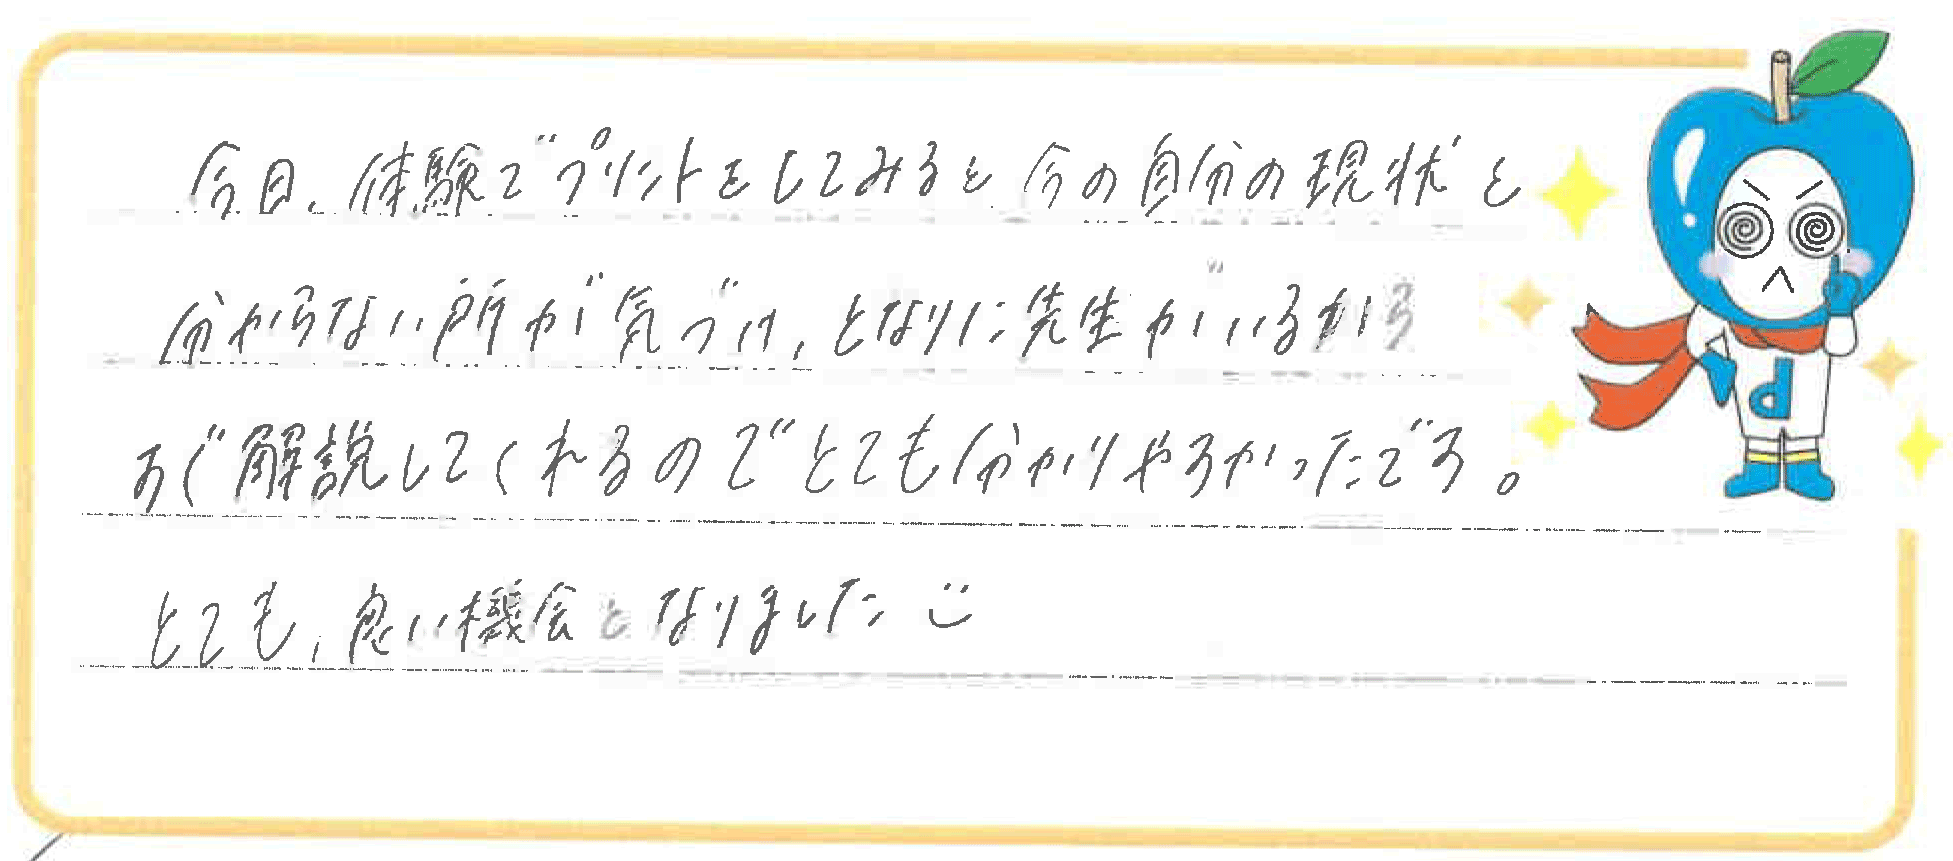 今日、体験でプリントをしてみると今の自分の現状と
分からない所が気づけ、となりに先生がいるから
すぐ解説してくれるのでとても分かりやすかったです。
とても、良い機会となりました
d